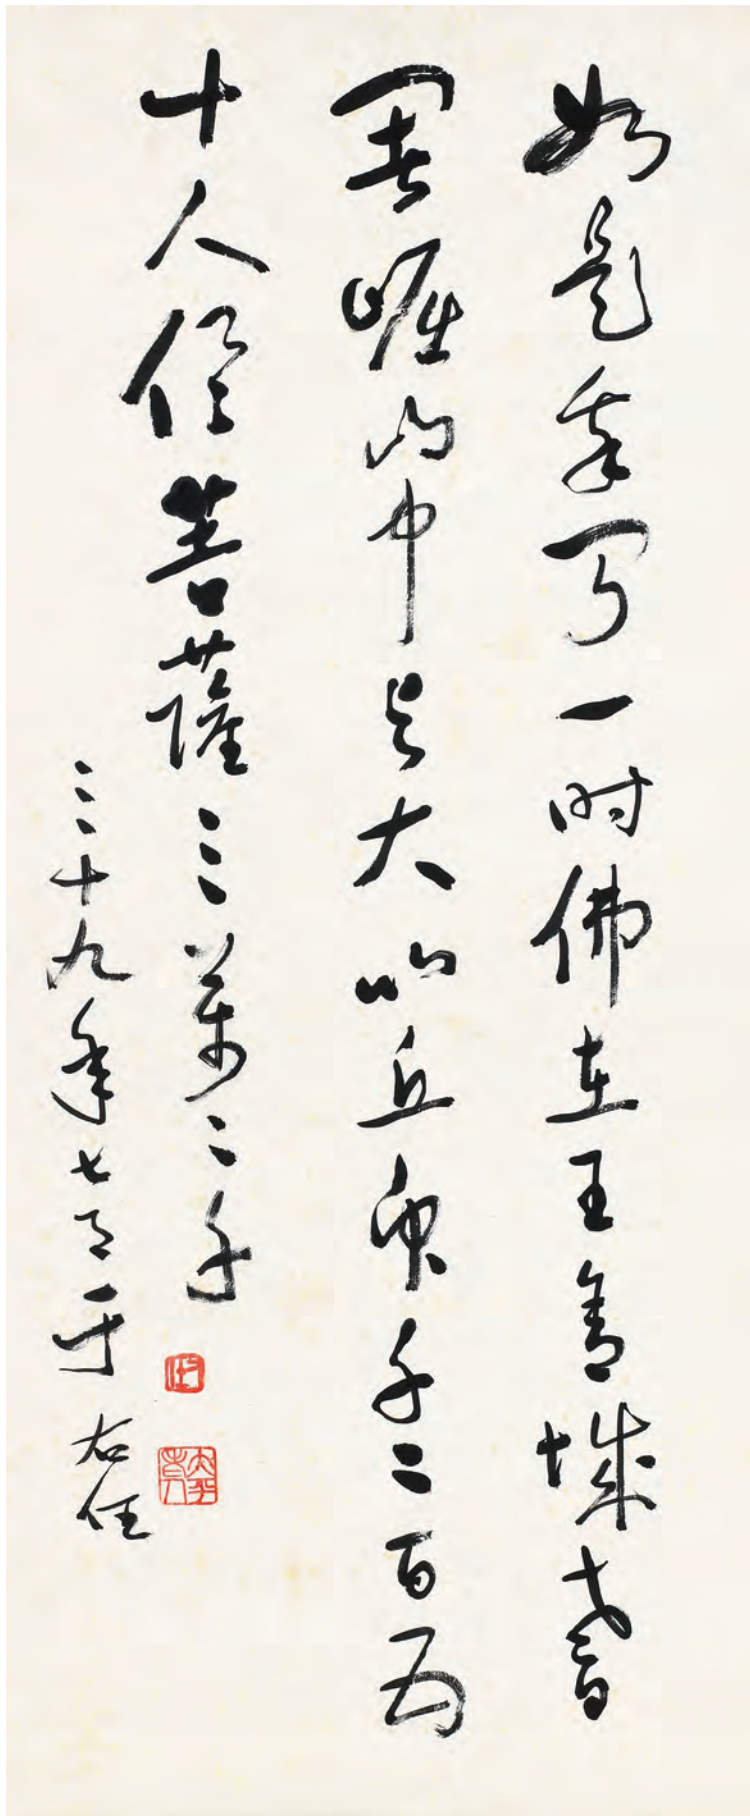 如是我聞一時佛在王舍城耆
闍崛山中與大比丘衆千二百五
十人俱菩薩三萬二千
三十九年七月于右任
右任
太平老人